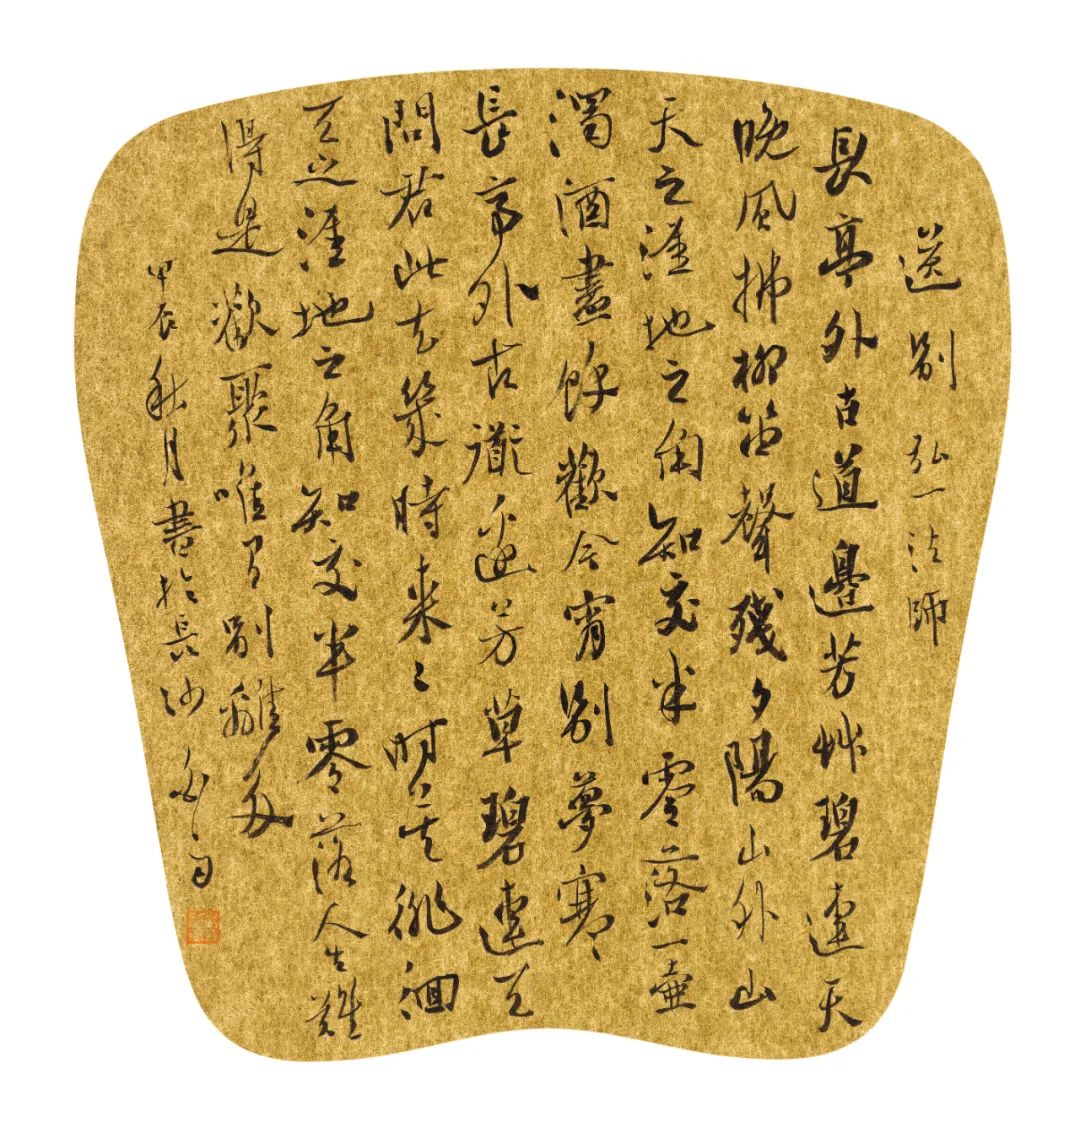 送別 弘一法師
長亭外古道邊芳艸碧連天
晚風拂柳笛聲殘夕陽山外山
天之涯地之角知交半零落一壺
濁酒盡餘歡今宵別夢寒
長亭外古道邊芳草碧連天
問君此去幾時来々時莫徘徊
天之涯地之角知交半零落人生難
得是歡聚唯有別離多
甲辰秋月書於長沙